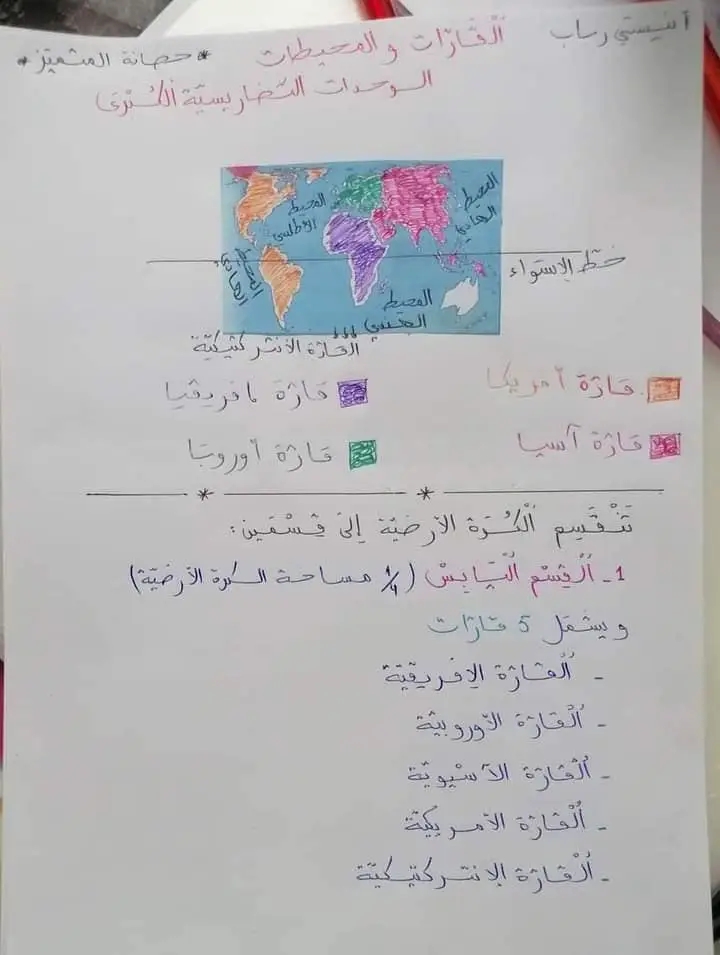 أنيستي رساب
القارّات و المحيطات
* حصانة المتميّز *
الوحدات التّضاريسيّة الكُبرى
المحيط الأطلسي
المحيط الهادي
المحيط الهادي
خطّ الإستواء
المحيط الهندي
القارّة الأنتركتيكيّة
قارّة أمريكا
قارّة إفريقيا
قارّة آسيا
قارّة أوروبّا
تَنْقَسِم الْكُرَة الأرضيّة إلىَ قِسْمَين:
1 - الْقِسْم الْيَابِسْ (1/4 مساحة الكرة الأرضيّة)
و يشمل 5 قارّات
- الْقارّة الإفريقيّة
- الْقارّة الأوروبيّة
- الْقارّة الآسْيويّة
- الْقارّة الأمريكيّة
- الْقارّة الإنتركتيكيّة